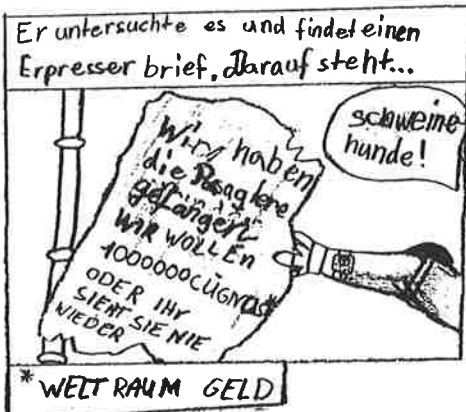 Er untersuchte es und findet einen
Erpresser brief. Darauf steht...
schweine
hunde!
Wir haben
die Pasagiere
gefangen
WIR WOLLEN
1000000 CÜGNOS*
ODER IHR
SIEHT SIE NIE
WIEDER
* WELTRAUM GELD